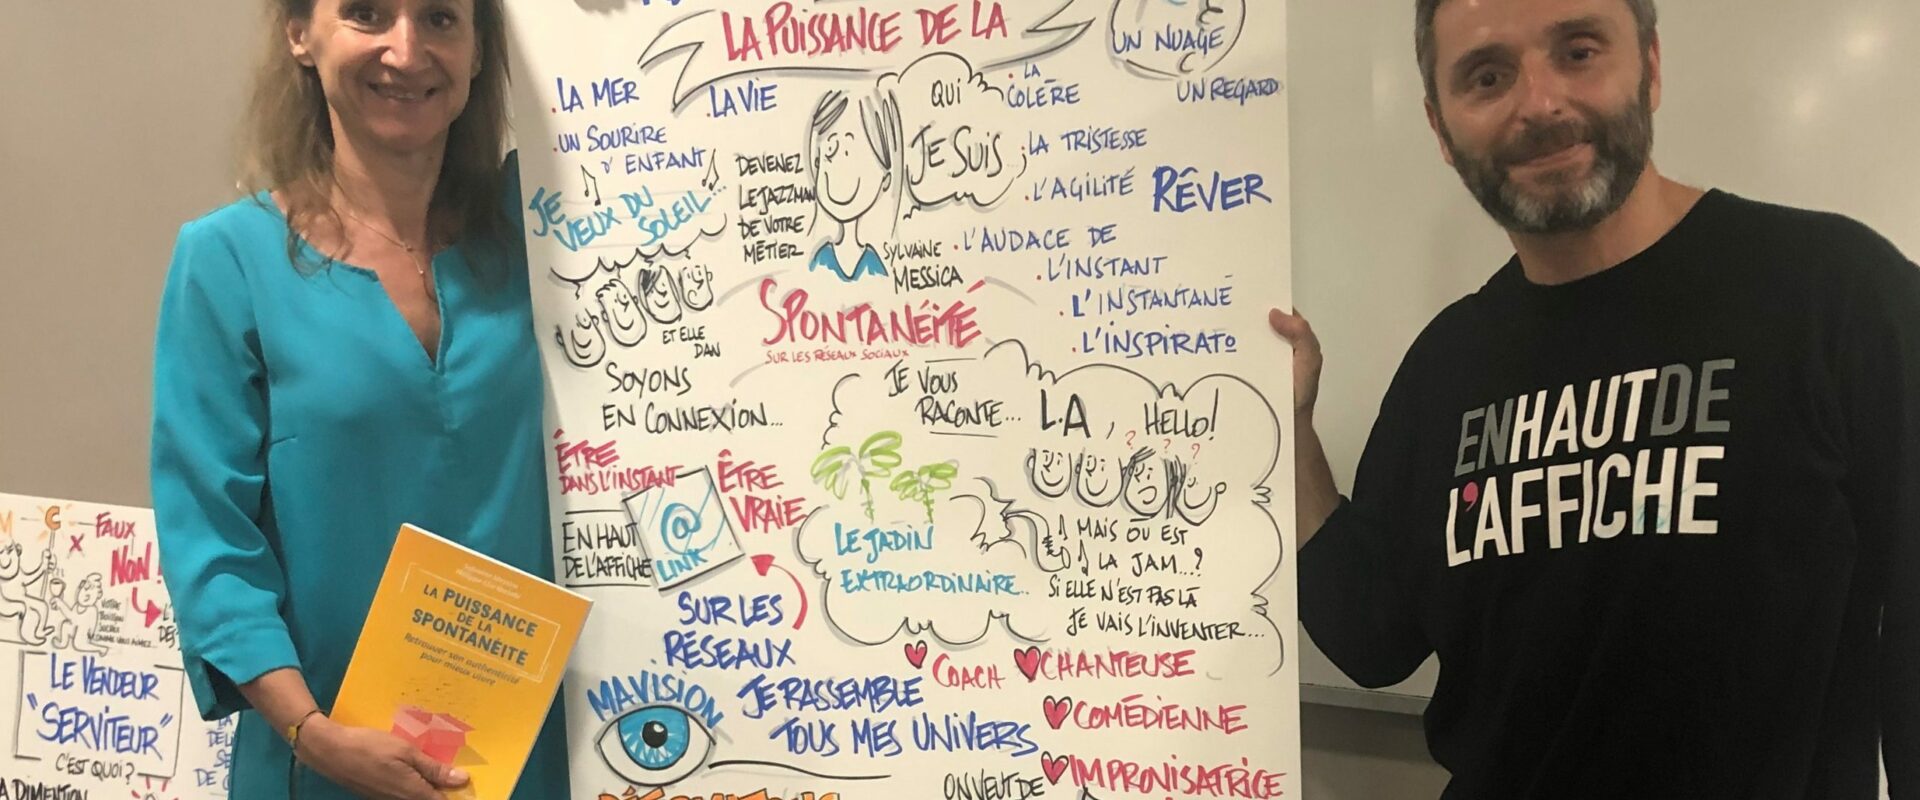 LA PUISSANCE DE LA
UN NUAGE
UN REGARD
. LA MER
LA VIE
QUI
JE SUIS
. LA
COLÈRE
. UN SOURIRE
D'ENFANT
DEVENEZ
LE JAZZMAN
DE VOTRE
MÉTIER
. LA TRISTESSE
. L'AGILITÉ
RÊVER
JE
VEUX DU
SOLEIL...
SYLVAINE
MESSICA
. L'AUDACE DE
. L'INSTANT
. L'INSTANTANÉ
. L'INSPIRATO
ET ELLE
DAN
SPONTANÉITÉ
SUR LES RÉSEAUX SOCIAUX
SOYONS
EN CONNEXION...
JE VOUS
RACONTE...
L.A, HELLO!
? ? ?
ÊTRE
DANS L'INSTANT
ÊTRE
VRAIE
EN HAUT
DE L'AFFICHE
@
LINK
LE JADIN
EXTRAORDINAIRE..
MAIS OÙ EST
LA JAM...?
SI ELLE N'EST PAS LÀ
JE VAIS L'INVENTER...
SUR LES
RÉSEAUX
MA VISION
JE RASSEMBLE
TOUS MES UNIVERS
COACH
CHANTEUSE
COMÉDIENNE
IMPROVISATRICE
ON VEUT DE
EN HAUT DE
L'AFFICHE
LA PUISSANCE
DE LA
SPONTANÉITÉ
Retrouver son authenticité
pour mieux vivre
FAUX
NON!
LE VENDEUR
"SERVITEUR"
C'EST QUOI?
LA DIMENTION